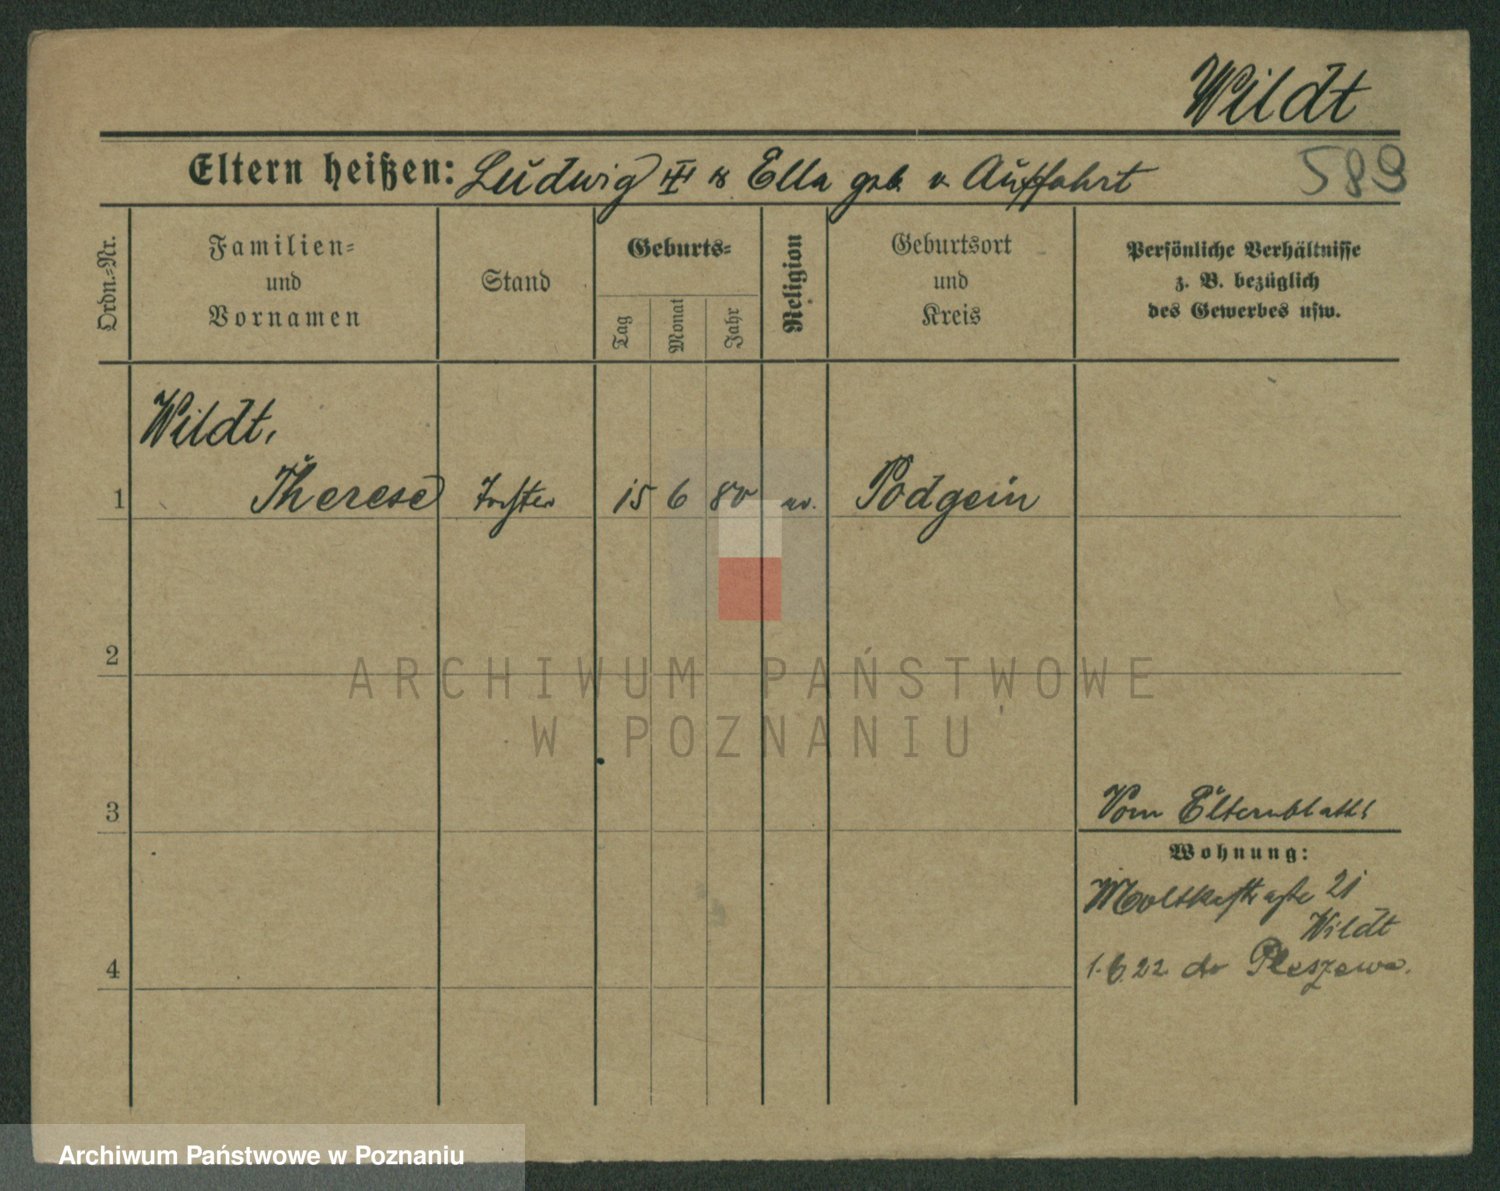 Wildt
Eltern heißen: Ludwig III & Ella geb. v. Auffahrt
589
Ordn.-Nr.
Familien-
und
Vornamen
Stand
Geburts-
Tag
Monat
Jahr
Religion
Geburtsort
und
Kreis
Persönliche Verhältnisse
z. B. bezüglich
des Gewerbes usw.
Wildt,
1 Therese 15 6 80 Podgein
2
ARCHIWUM PAŃSTWOWE
W POZNANIU
3
Vom Elternblatt
Wohnung:
Moltkestraße 21
Wildt
4
1.6.22 do Pleszewa.
Archiwum Państwowe w Poznaniu